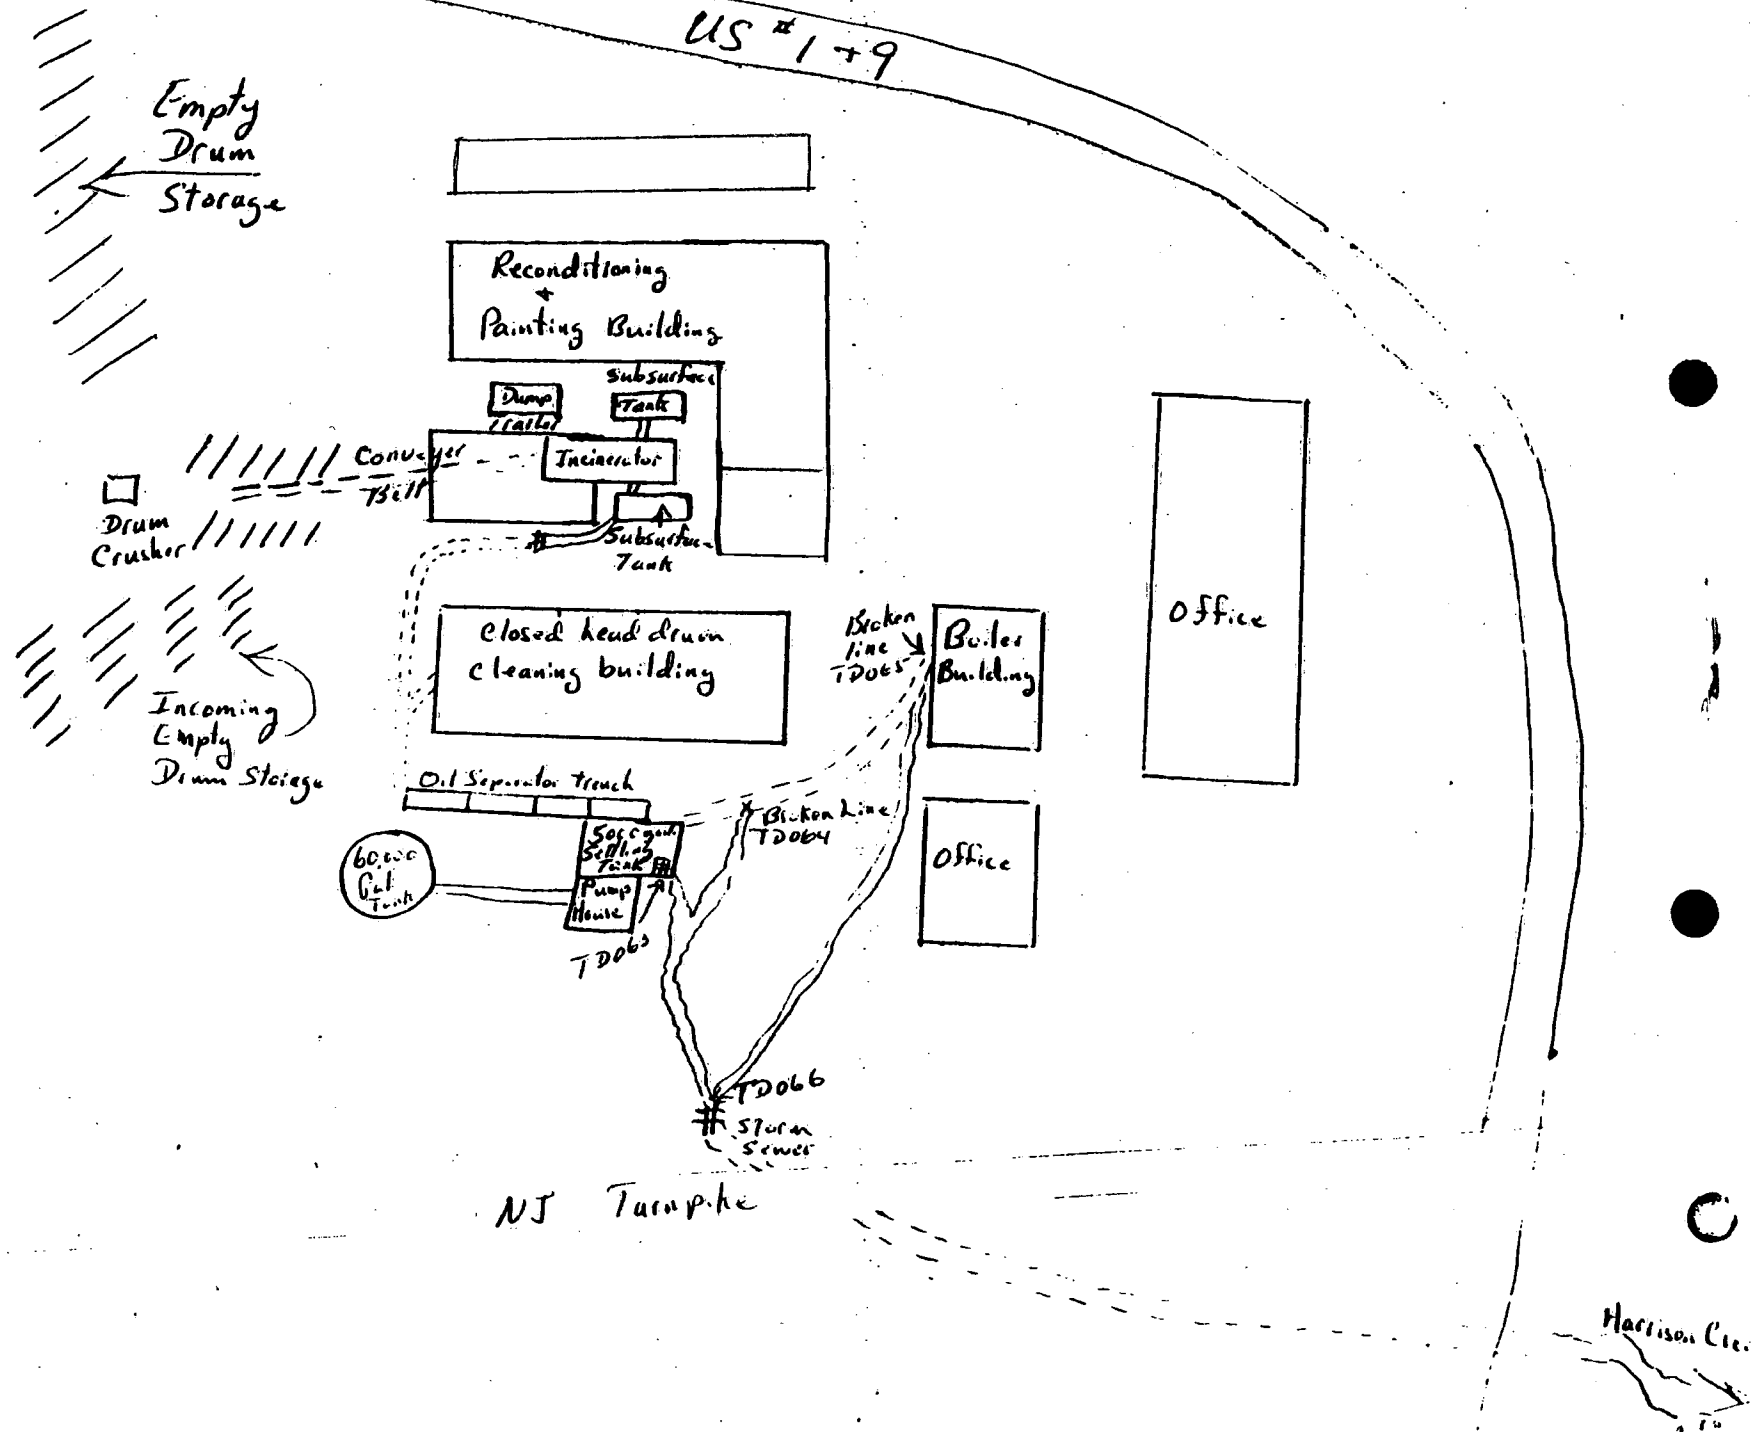 US #1+9
Empty
Drum
Storage
Reconditioning
+
Painting Building
Subsurface
Tank
Dump
Trailer
Conveyer
Belt
Incinerator
Subsurface
Tank
Drum
Crusher
Closed head drum
cleaning building
Broken
line
TD065
Boiler
Building
Office
Incoming
Empty
Drum Storage
Oil Separator Trench
Broken Line
TD064
Settling
Tank
60,000
Gal
Tank
Pump
House
TD063
Office
TD066
Storm
Sewer
NJ Turnpike
Harrison
To